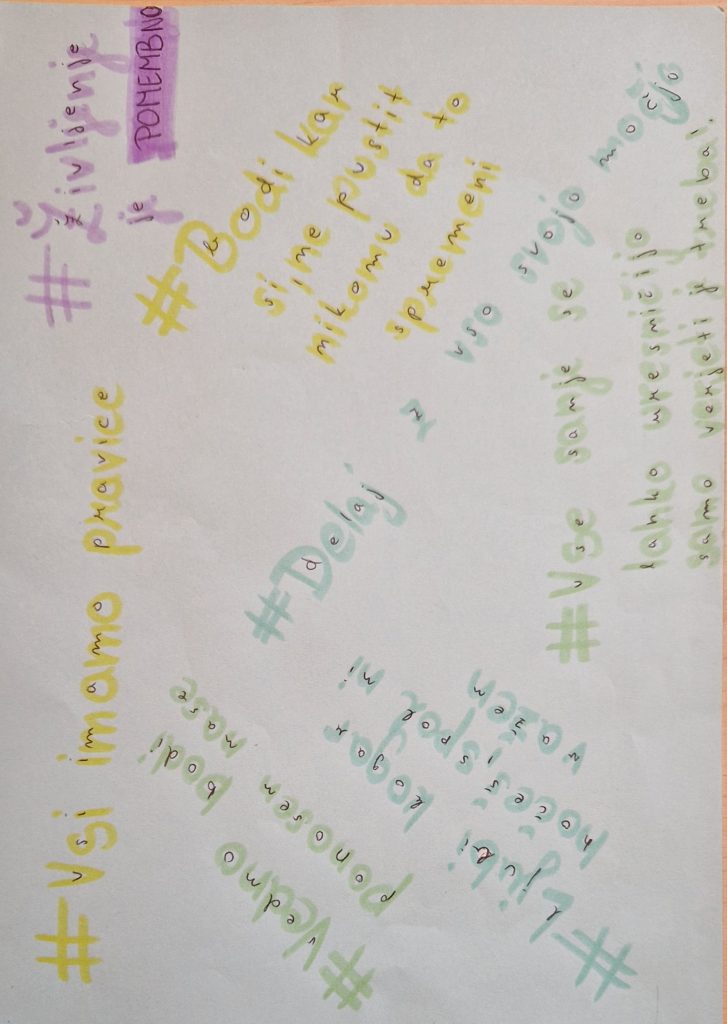 #Vsi imamo pravice
#Življenje
je POMEMBNO
#Vedno bodi
ponosen nase
#Bodi kar
si, ne pustit
nikomu da to
spremeni
#Delaj z vso svojo močjo
#Ljubi kogar
hočeš spol ni
važen
#Vse sanje se
lahko uresničijo
samo verjeti je treba!